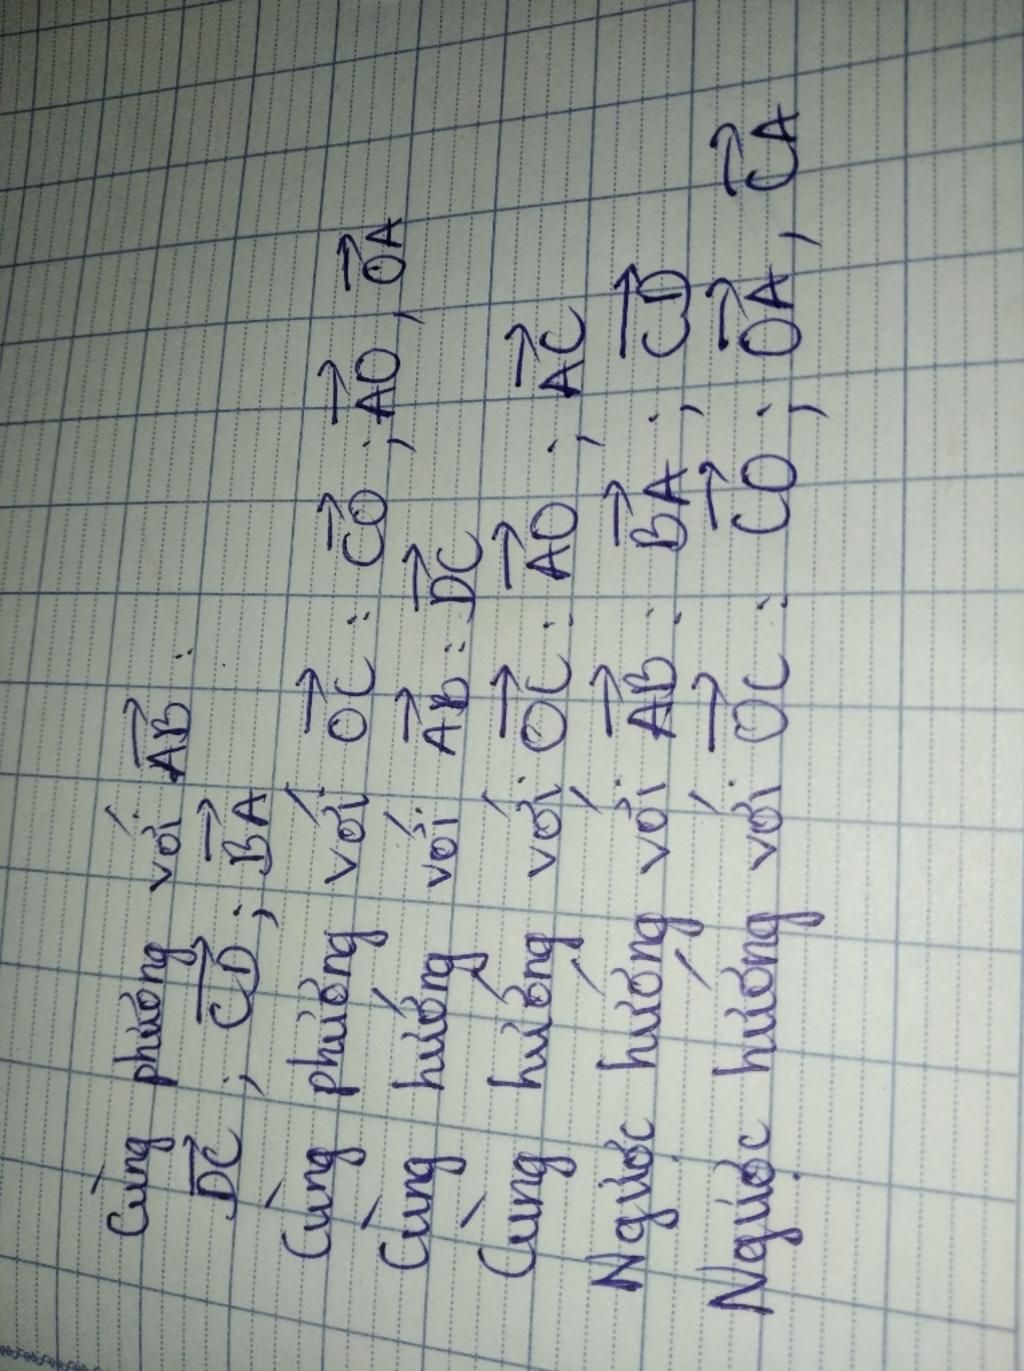 Cùng phương với AB⃗ :
DC⃗ ; CD⃗ ; BA⃗
Cùng phương với OC⃗ : CO⃗ ; AO⃗ , OA⃗
Cùng hướng với AB⃗ : DC⃗
Cùng hướng với OC⃗ : AO⃗ ; AC⃗
Ngược hướng với AB⃗ : BA⃗ ; CD⃗
Ngược hướng với OC⃗ : CO⃗ ; OA⃗ , CA⃗